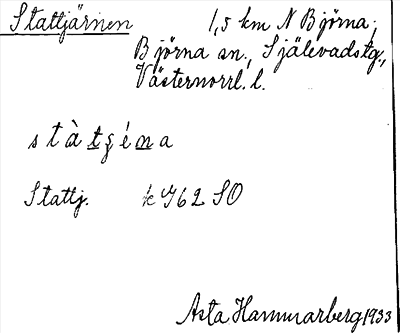 Stattjärnen 1,5 km N Björna,
Björna sn., Själevadstg.,
Västernorrl. l.
s t à t ʒ é n a
Stattj. k J62 SO
Asta Hammarberg 1933